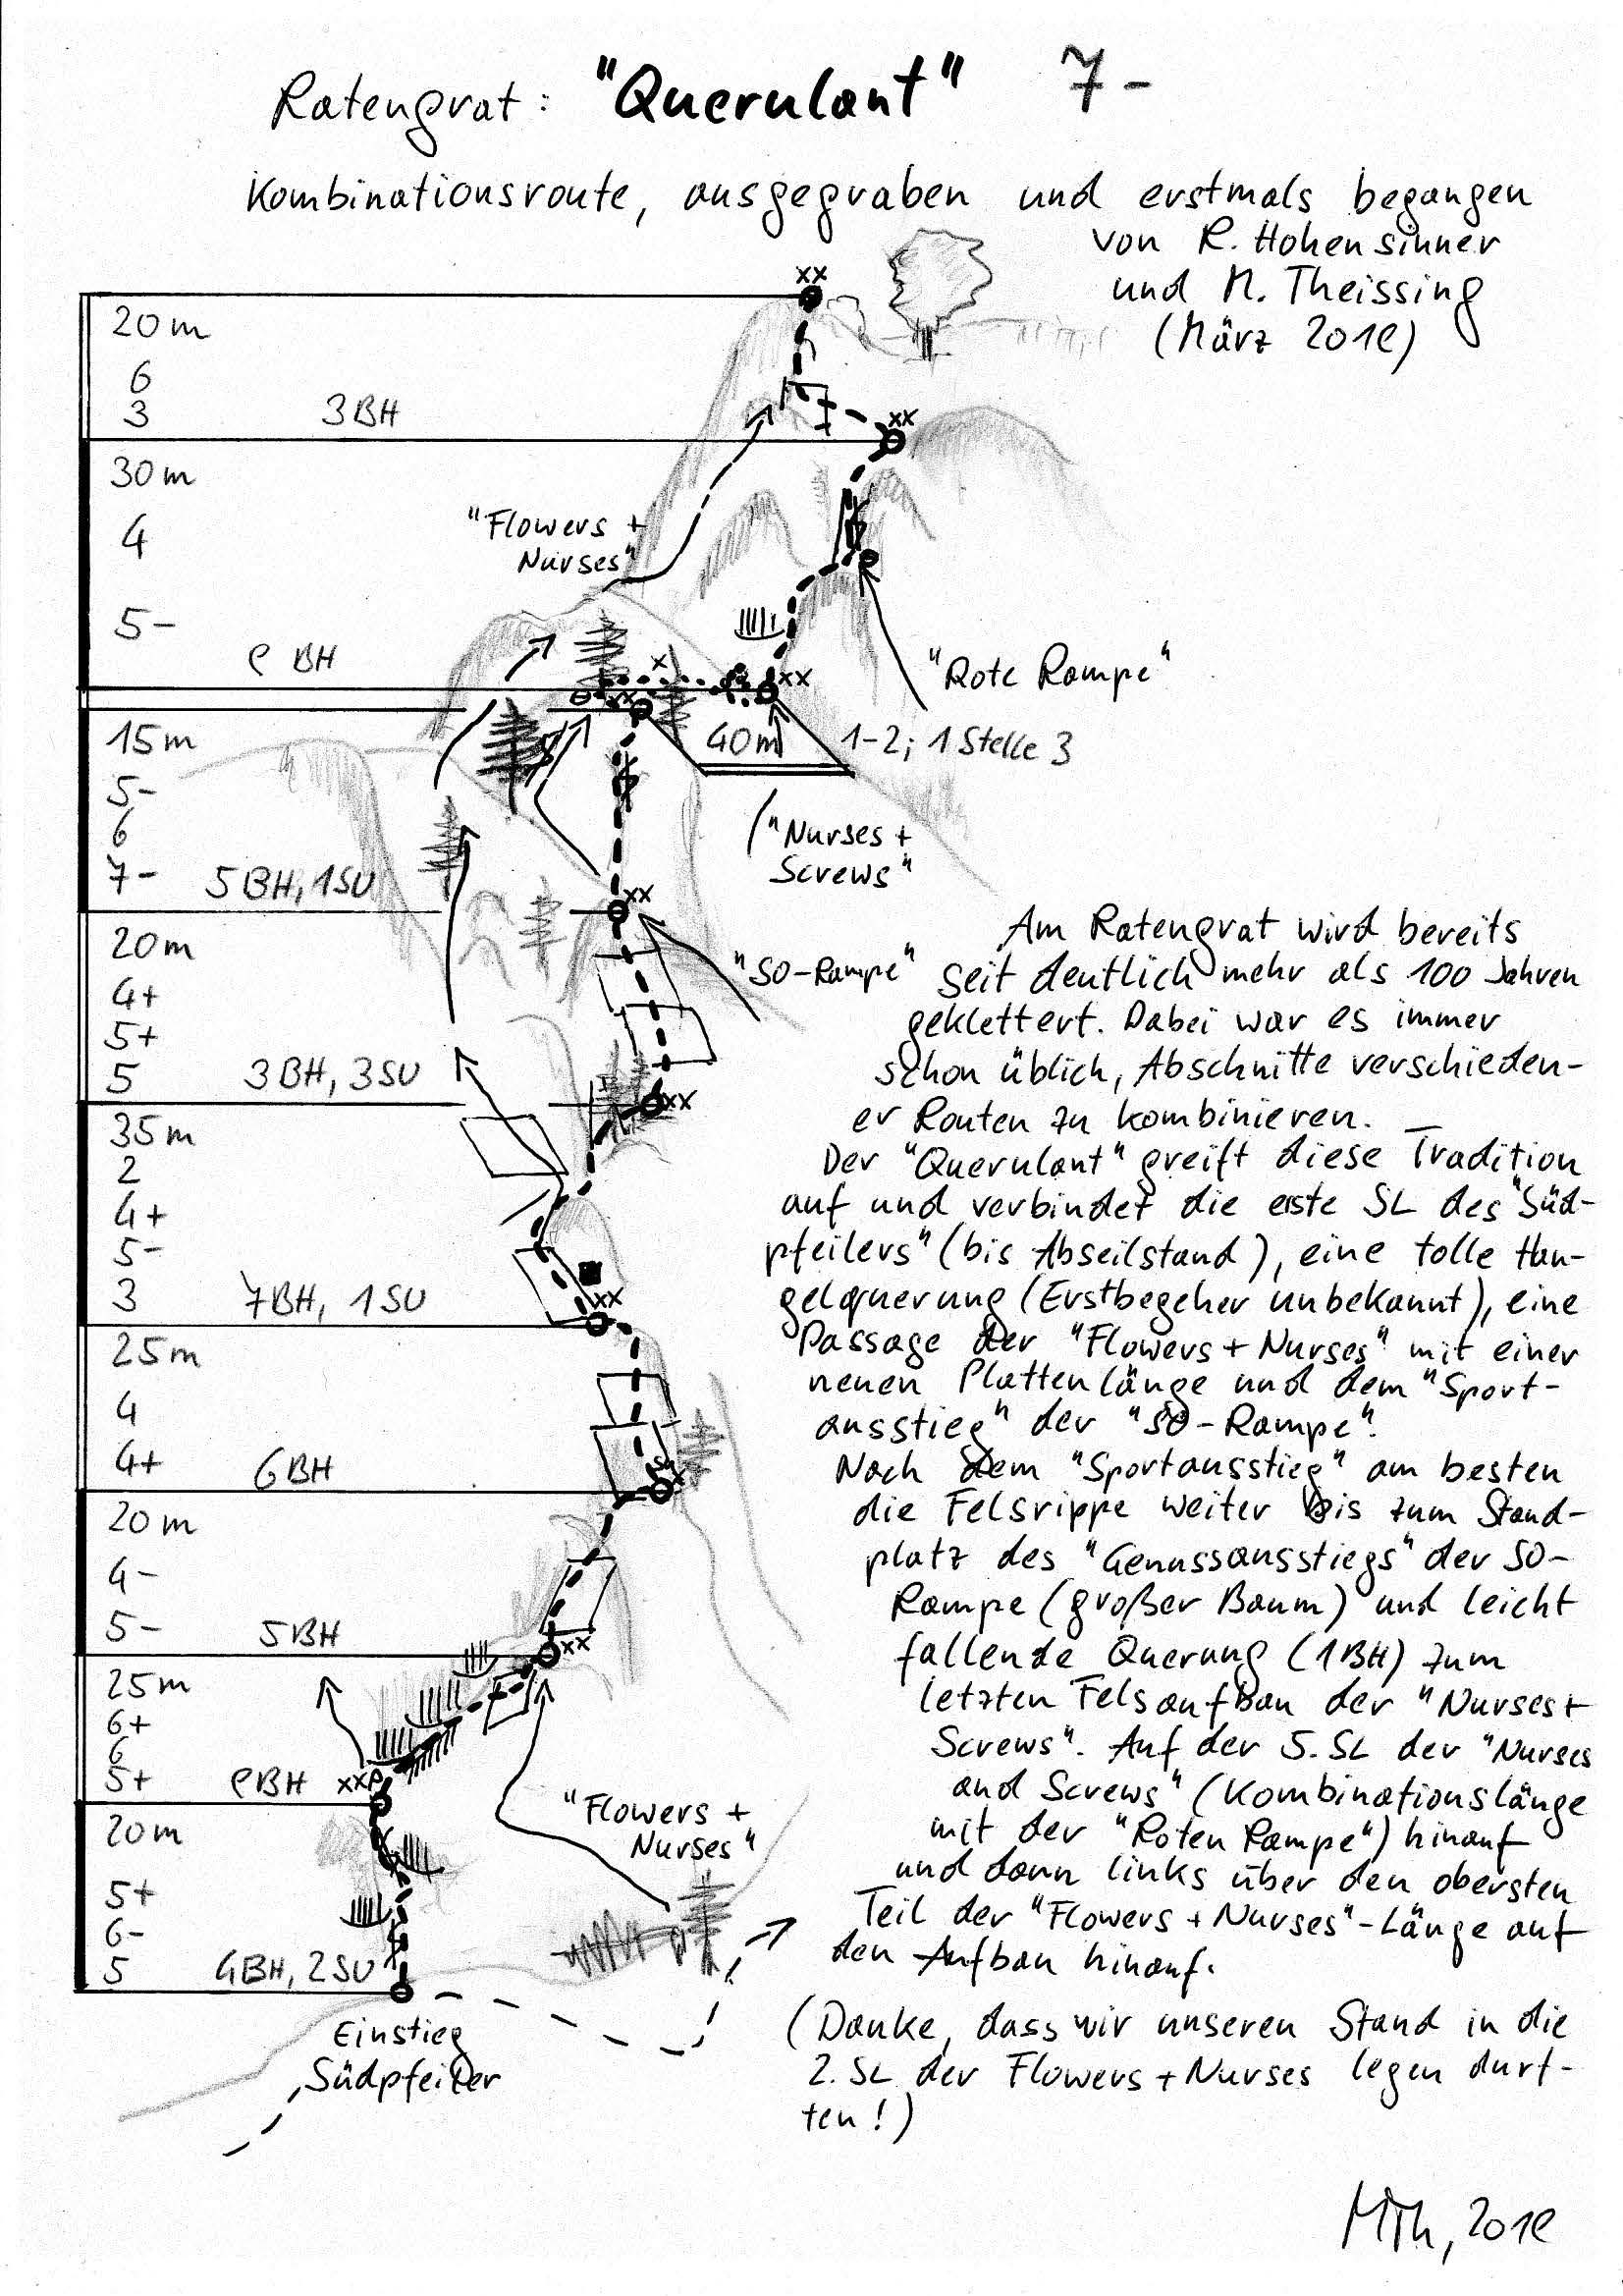 Ratengrat: "Querulant" 7-
Kombinationsroute, ausgegraben und erstmals begangen
von R. Hohensinner
und M. Theissing
(März 2018)
xx
20m
6
3 3BH
xx
30m
4
"Flowers +
Nurses"
5-
8 BH
"Rote Rampe"
x
xx
xx
15m
40m
1-2; 1 Stelle 3
5-
6
7- 5BH, 1SU
("Nurses +
Screws"
xx
20m
4+
5+
5 3BH, 3SU
"SO-Rampe"
xx
35m
2
4+
5-
3 7BH, 1SU
xx
25m
4
4+ 6BH
20m
4-
5- 5BH
xx
25m
6+
6
5+ 8BH xx
20m
"Flowers +
Nurses"
5+
6-
5 4BH, 2SU
Einstieg
Südpfeiler
Am Ratengrat wird bereits
seit deutlich mehr als 100 Jahren
geklettert. Dabei war es immer
schon üblich, Abschnitte verschieden-
er Routen zu kombinieren.
Der "Querulant" greift diese Tradition
auf und verbindet die erste SL des "Süd-
pfeilers" (bis Abseilstand), eine tolle Han-
gelquerung (Erstbegeher unbekannt), eine
Passage der "Flowers + Nurses" mit einer
neuen Plattenlänge und dem "Sport-
ausstieg" der "SO-Rampe".
Nach dem "Sportausstieg" am besten
die Felsrippe weiter bis zum Stand-
platz des "Genussausstiegs" der SO-
Rampe (großer Baum) und leicht
fallende Querung (1BH) zum
letzten Felsaufbau der "Nurses +
Screws". Auf der 5. SL der "Nurses
and Screws" (Kombinationslänge
mit der "Roten Rampe") hinauf
und dann links über den obersten
Teil der "Flowers + Nurses"-Länge auf
den Aufbau hinauf.
(Danke, dass wir unseren Stand in die
2. SL der Flowers + Nurses legen durf-
ten!)
MTh, 2018